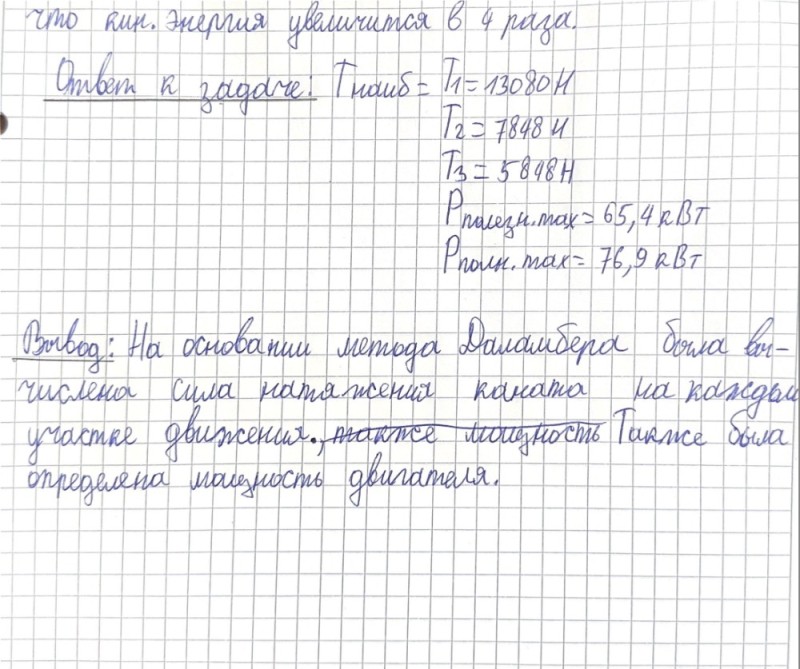 что кин. энергия увеличится в 4 раза.
Ответ к задаче: Tнаиб = T1 = 13080 Н
T2 = 7848 Н
T3 = 5848 Н
Pполезн.max = 65,4 кВт
Pполн.max = 76,9 кВт
Вывод: На основании метода Даламбера была вы-
числена сила натяжения каната на каждом
участке движения., также мощность Также была
определена мощность двигателя.